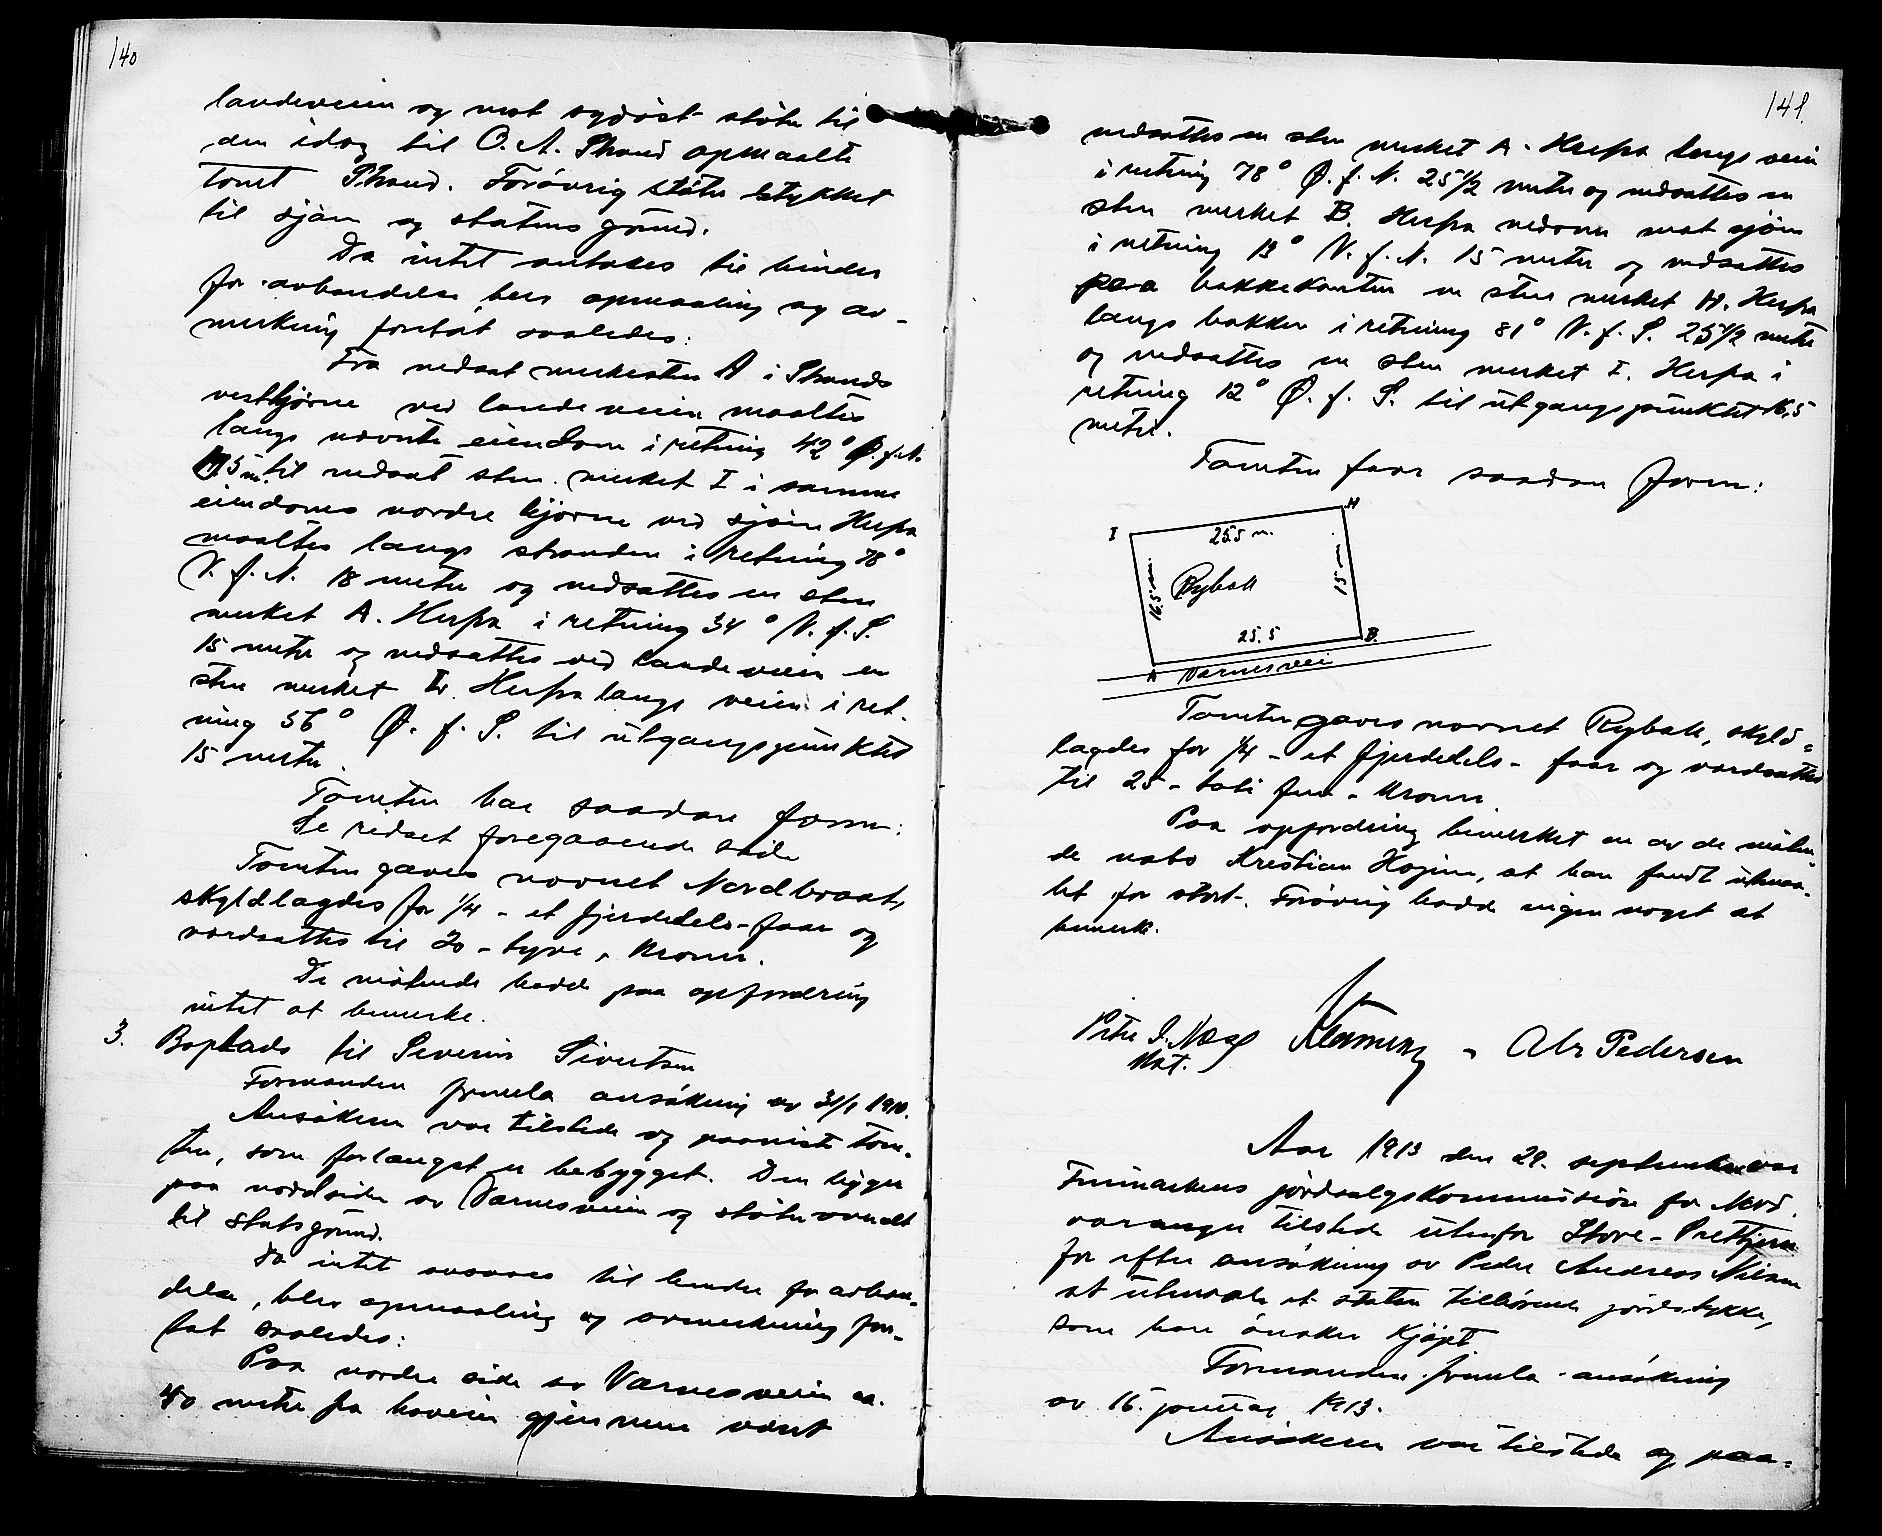 140
landeveien og mot sydöst stöter til
den idag til O. A. Strand opmaalte
tomt Strand. Forövrig stöter stykket
til sjöen og statens grund.
Da intet antokes til hinder
for avhændelse blev opmaaling og av-
merkning foretat saaledes:
Fra nedsat merkesten A i Strands
vesthjörne ved landeveien maaltes
langs nævnte eiendom i retning 42° Ø. f. N.
m. til nedsat sten merket I i samme
eiendoms nordre hjörne ved sjöen Herfra
maaltes langs stranden i retning 78°
V. f. N. 18 meter og nedsattes en sten
merket A. Herfra i retning 34° V. f. S.
15 meter og nedsattes ved landeveien en
sten merket Herfra langs veien i ret-
ning 56° Ø. f. S. til utgangspunktet
15 meter.
Tomten har saadan form:
Se ridset foregaaende side
Tomten gaves navnet Nordbraat,
skyldlagdes for 1/4 - et fjerdedels - faar og
værdsattes til 20 - tyve - kroner.
De mötende hadde paa opfordring
intet at bemerke.
3. Boplads til Severin Sivertsen
Formanden fremla ansökning av 31/1 1910.
Ansökeren var tilstede og paaviste tom-
ten, som forlængst er bebygget. Den ligger
paa nordsiden av Værnesveien og stöter overalt
til statsgrund.
Da intet ansaaes til hinder for avhæn-
delse, blev opmaaling og avmerkning fore-
tat saaledes:
Paa nordre side av Værnesveien ca.
40 meter fra haveien gjennem været
141.
nedsattes en sten merket A. Herfra langs veien
i retning 78° Ø. f. N. 25 1/2 meter og nedsattes en
sten merket B. Herfra nedover mot sjöen
i retning 13° V. f. N. 15 meter og nedsattes
paa bakkekanten en sten merket H. Herfra
langs bakken i retning 81° V. f. S. 25 1/2 meter
og nedsattes en sten merket I. Herfra i
retning 12° Ø. f. S. til utgangspunktet 16,5
meter.
Tomten faar saadan form:
I H
25.5 m.
16.5 m. Rybak 15 m.
25.5
A B.
Værnesvei
Tomten gaves navnet Rybak, skyld-
lagdes for 1/4 - et fjerdedels - faar og værdsattes
til 25 - tyve fem - kroner.
Paa opfordring bemerket en av de möten-
de nabo Kristian Hagine, at han fandt utmaa-
let for stort. Forövrig hadde ingen noget at
bemerke.
Peter I. Næss - Abr Pedersen
Mat.
Aar 1913 den 29. september var
Finmarkens jordsalgskommission for Nord-
varanger tilstede utenfor Store-Prettjern
for efter ansökning av Peder Andreas Nilsen
at utmaale et staten tilhörende jordstykke,
som han önsker kjöpt
Formanden fremla ansökning
av 16. januar 1913.
Ansökeren var tilstede og paa-